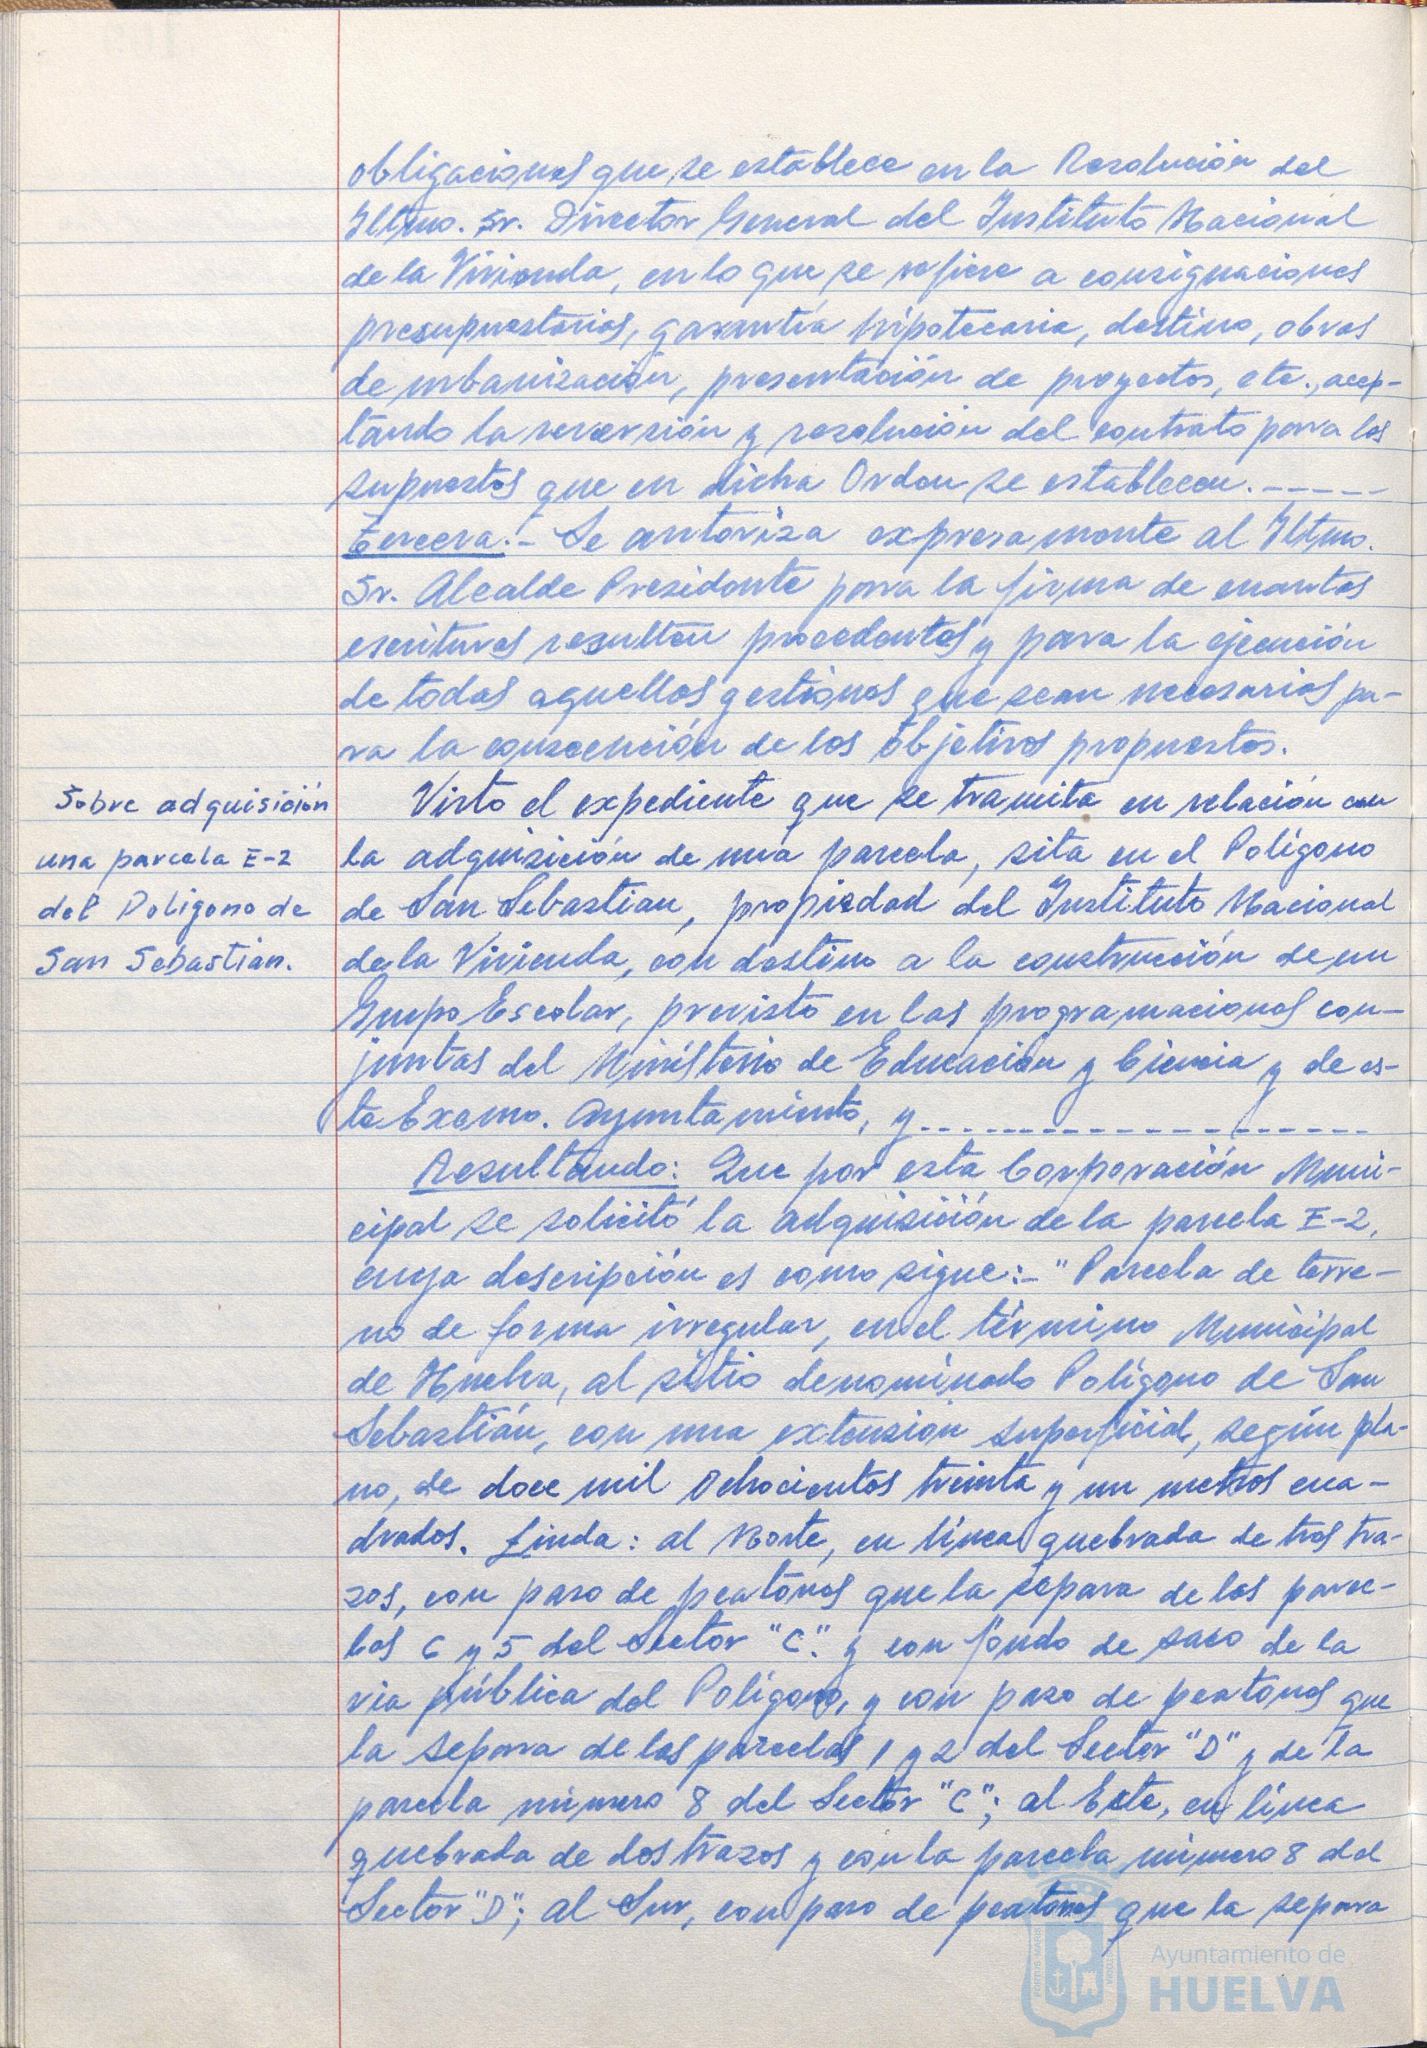 obligaciones que se establece en la Resolución del
Iltmo. Sr. Director General del Instituto Nacional
de la Vivienda, en lo que se refiere a consignaciones
presupuestarias, garantía hipotecaria, destino, obras
de urbanización, presentación de proyectos, etc., acep-
tando la reversión y resolución del contrato para los
supuestos que en dicha Orden se establecen. -----
Tercera.- Se autoriza expresamente al Iltmo.
Sr. Alcalde Presidente para la firma de cuantas
escrituras resulten procedentes y para la ejecución
de todas aquellas gestiones que sean necesarias pa-
ra la consecución de los objetivos propuestos.
Sobre adquisición
una parcela E-2
del Poligono de
San Sebastián.
Visto el expediente que se tramita en relación con
la adquisición de una parcela, sita en el Polígono
de San Sebastian, propiedad del Instituto Nacional
de la Vivienda, con destino a la construcción de un
Grupo Escolar, previsto en las programaciones con-
juntas del Ministerio de Educación y Ciencia y de es-
te Excmo. Ayuntamiento, y--------------------
Resultando: Que por esta Corporación Muni-
cipal se solicitó la adquisición de la parcela E-2,
cuya descripción es como sigue:- "Parcela de terre-
no de forma irregular, en el término Municipal
de Huelva, al sitio denominado Polígono de San
Sebastián, con una extensión superficial, según pla-
no, de doce mil ochocientos treinta y un metros cua-
drados. Linda: al Norte, en línea quebrada de tres tra-
zos, con paso de peatones que la separa de las parce-
las 6 y 5 del Sector "C". y con fondo de saco de la
via pública del Polígono, y con paso de peatones que
la separa de las parcelas 1 y 2 del Sector "D" y de la
parcela número 8 del Sector "C"; al Este, en línea
quebrada de dos trazos y con la parcela número 8 del
Sector "D"; al Sur, con paso de peatones que la separa
Ayuntamiento de
HUELVA